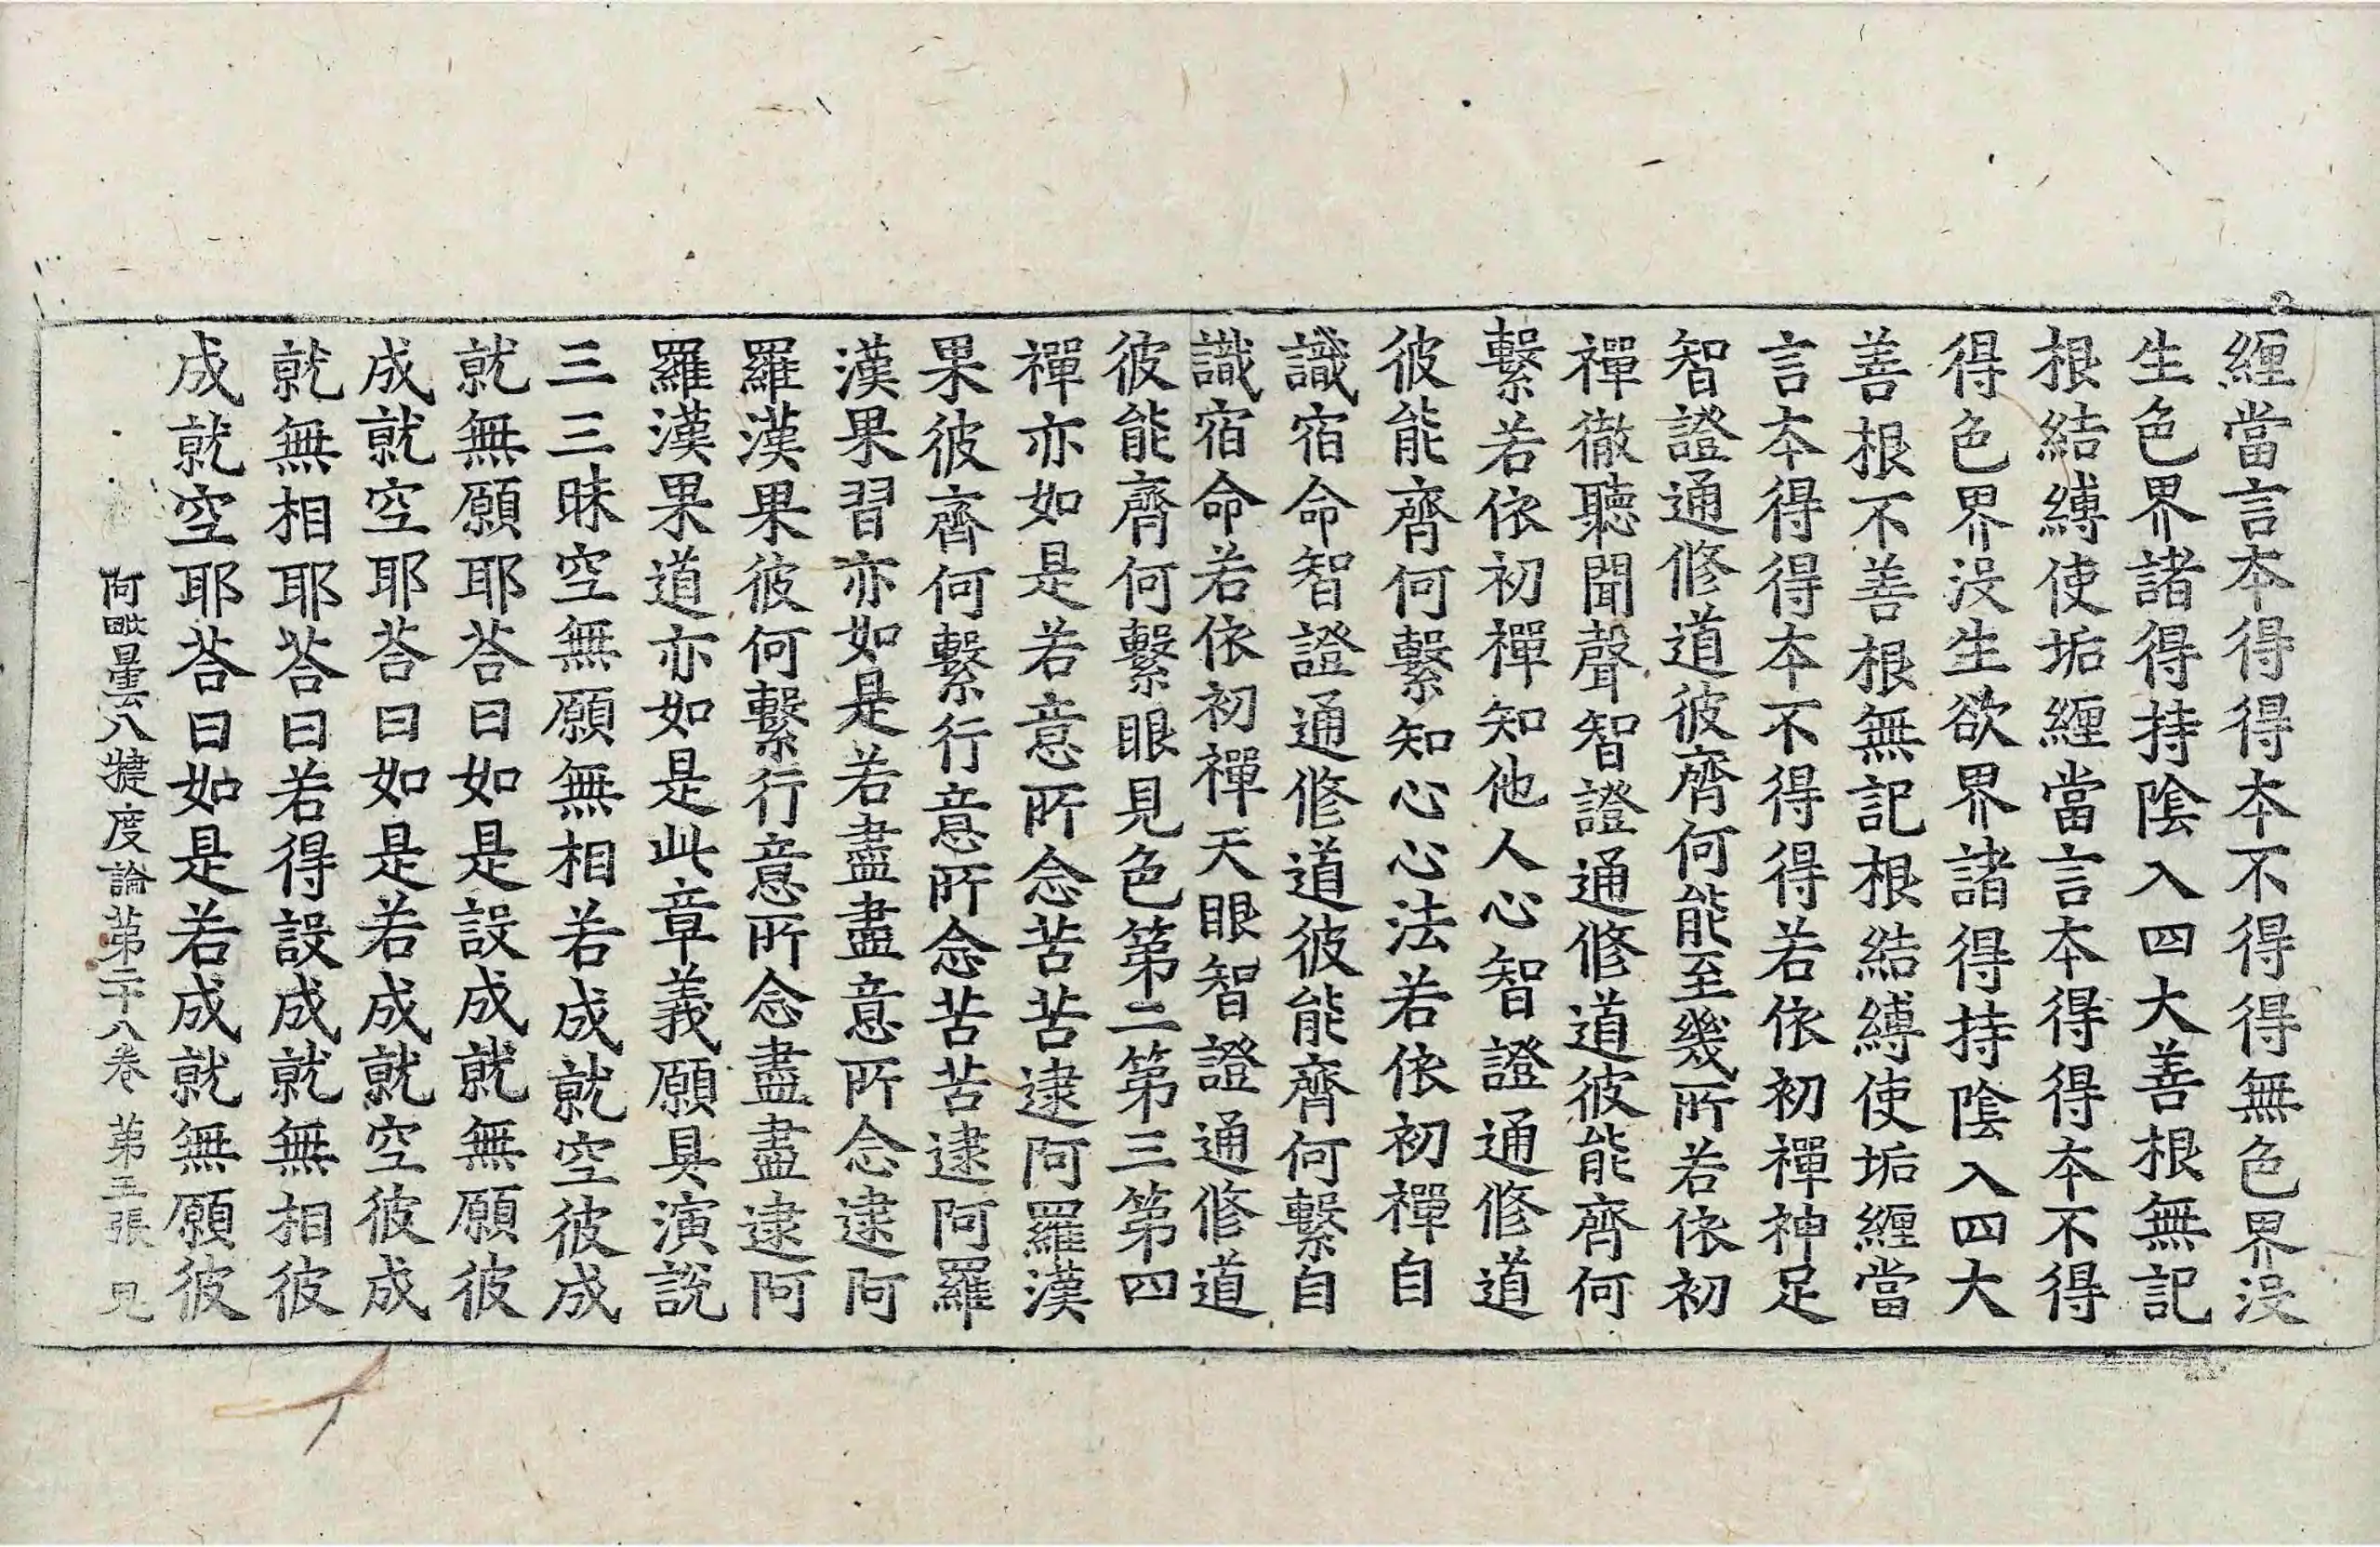 纏當言本得得本不得得無色界沒
生色界諸得持陰入四大善根無記
根結縛使垢纏當言本得得本不得
得色界沒生欲界諸得持陰入四大
善根不善根無記根結縛使垢纏當
言本得得本不得得若依初禪神足
智證通修道彼齊何能至幾所若依初
禪徹聽聞聲智證通修道彼能齊何
繫若依初禪知他人心智證通修道
彼能齊何繫知心心法若依初禪自
識宿命智證通修道彼能齊何繫自
識宿命若依初禪天眼智證通修道
彼能齊何繫眼見色第二第三第四
禪亦如是若意所念苦苦逮阿羅漢
果彼齊何繫行意所念苦苦逮阿羅
漢果習亦如是若盡盡意所念逮阿
羅漢果彼何繫行意所念盡盡逮阿
羅漢果道亦如是此章義願具演說
三三昧空無願無相若成就空彼成
就無願耶荅曰如是設成就無願彼
成就空耶荅曰如是若成就空彼成
就無相耶荅曰若得設成就無相彼
成就空耶荅曰如是若成就無願彼
阿毗曇八犍度論第二十八卷 第三張 見